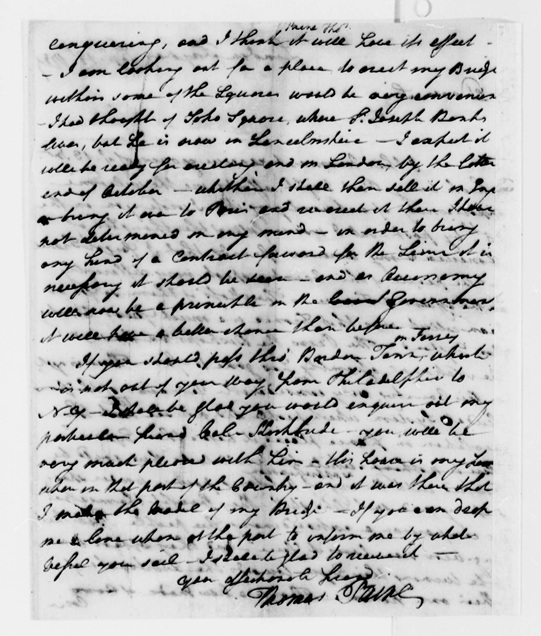 Paine Thos.
conquering, and I think it will have its effect -
- I am looking out for a place to erect my Bridge
within some of the Squares would be very convenien
- I had thought of Soho Square, where Sr. Joseph Banks
lives, but he is now in Lincolnshire - I expect it
will be ready for erecting and in London, by the latter
end of October - whether I shall then sell it in Eng
or bring it over to Paris and re-erect it there I have
not determined in my mind - in order to bring
any kind of a contract forward for the Seine it is
necessary it should be seen - and as Œconomy
will now be a principle in the Government
it will have a better chance than before
in Jersey
If you should pass thro' Borden Town, which
is not out of your way from Philadelphia to
N.Y - I shall be glad you would enquire out my
particular friend Col. Kirkbride - you will be
very much pleased with him - his house is my hom
when in that part of the Country - and it was there that
I made the Model of my Bridge - If you can drop
me a line when at the port to inform me by what
vessel you sail - I shall be glad to receive it -
your affectionate friend
Thomas Paine